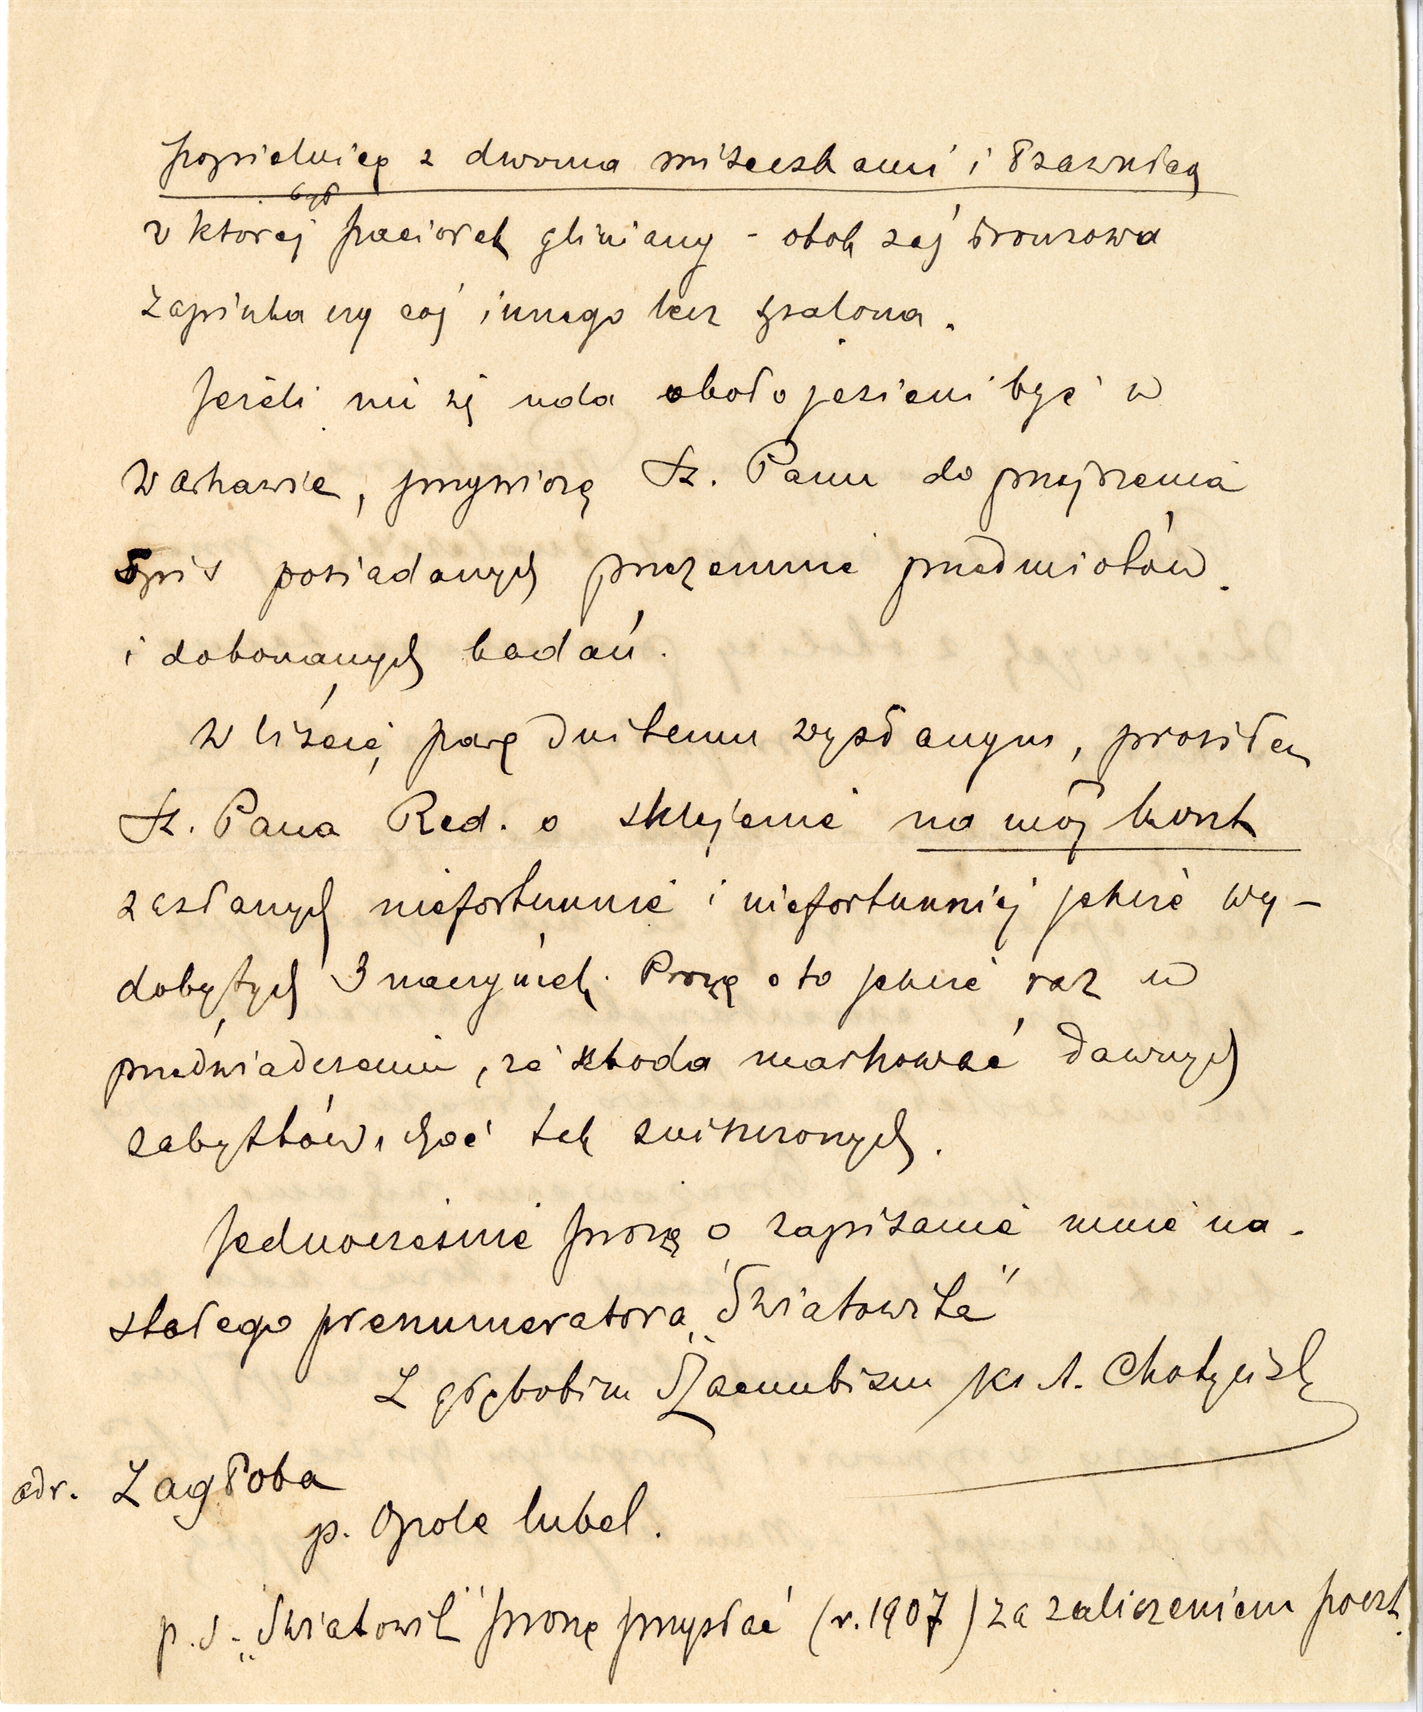 popielnicę z dwoma miseczkami i łzawnicą
w której był paciorek gliniany - obok zaś bronzowa
zapinka czy coś innego lecz spalona.
Jeżeli mi się uda około jesieni być w
Warszawie, przywiozę Sz. Panu do przejrzenia
spis posiadanych przezemnie przedmiotów
i dokonanych badań.
W liście, parę dni temu wysłanym, prosiłem
Sz. Pana Red. o sklejenie na mój koszt
zesłanych niefortunnie i niefortunniej jeszcze wy-
dobytych 3 naczyniek. Proszę o to jeszcze raz w
przeświadczeniu, że szkoda marnować dawnych
zabytków, choć tak zniszczonych.
Jednocześnie proszę o zapisanie mnie na
stałego prenumeratora „Światowita"
Z głębokim Szacunkiem ks A. Chotyński
adr. Zagłoba
p. Opole lubel.
p.s. „Światowit" proszę przysłać (r. 1907) za zaliczeniem poczt.